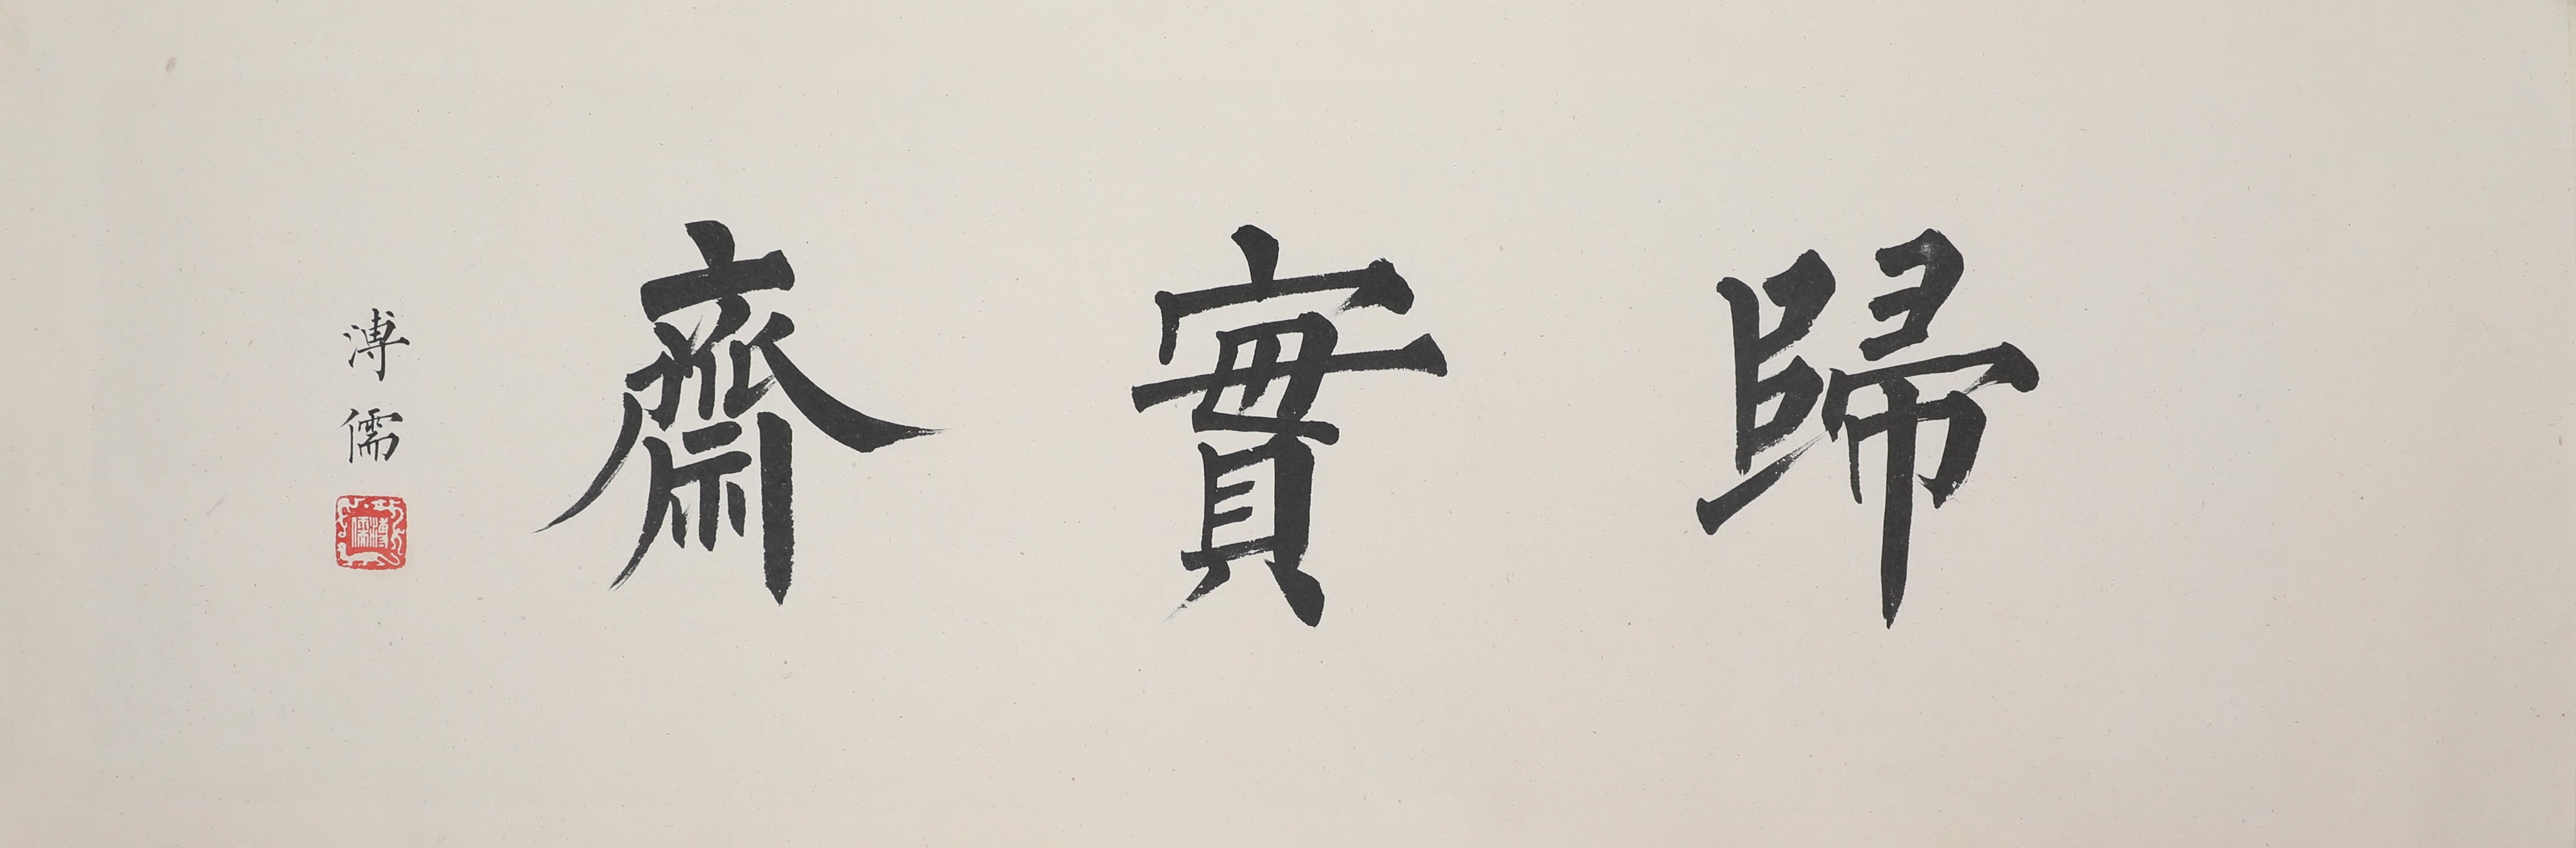 歸實齋
溥儒
溥儒